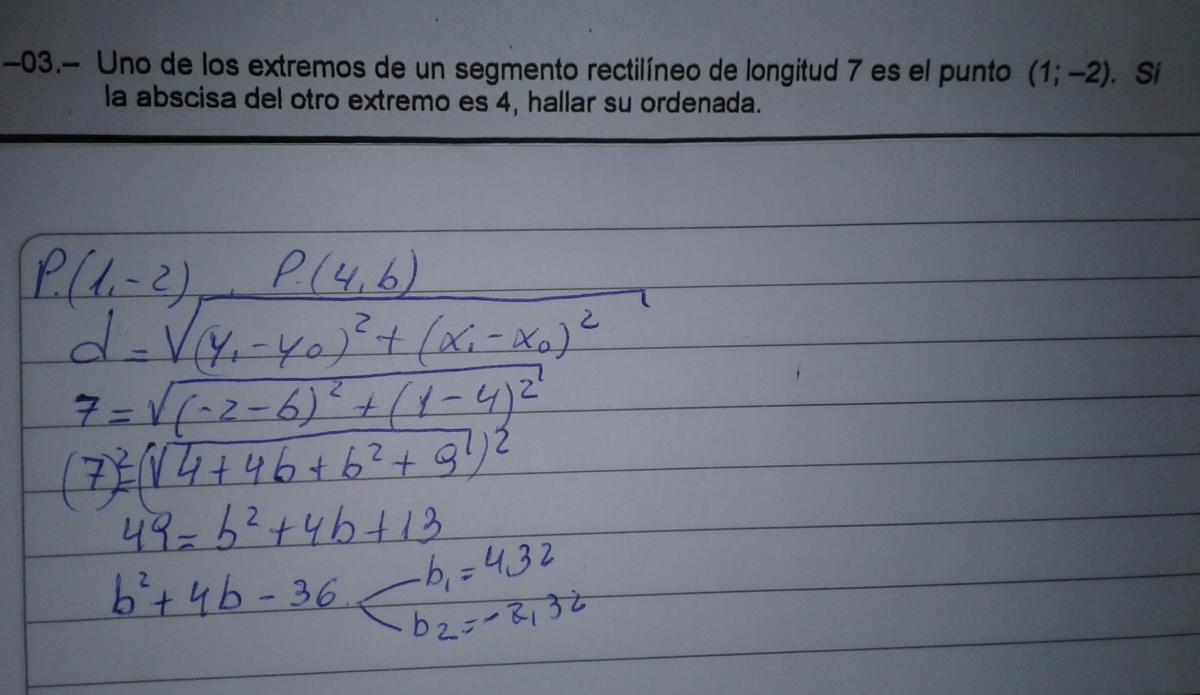 –03.– Uno de los extremos de un segmento rectilíneo de longitud 7 es el punto (1; –2). Si
la abscisa del otro extremo es 4, hallar su ordenada.
P.(1,-2) , P.(4,b)
d = √(y₁-y₀)² + (x₁-x₀)²
7 = √(-2-b)² + (1-4)²
(7)² = (√4+4b+b²+9)²
49 = b² + 4b + 13
b² + 4b - 36
b₁ = 4,32
b₂ = -8,32